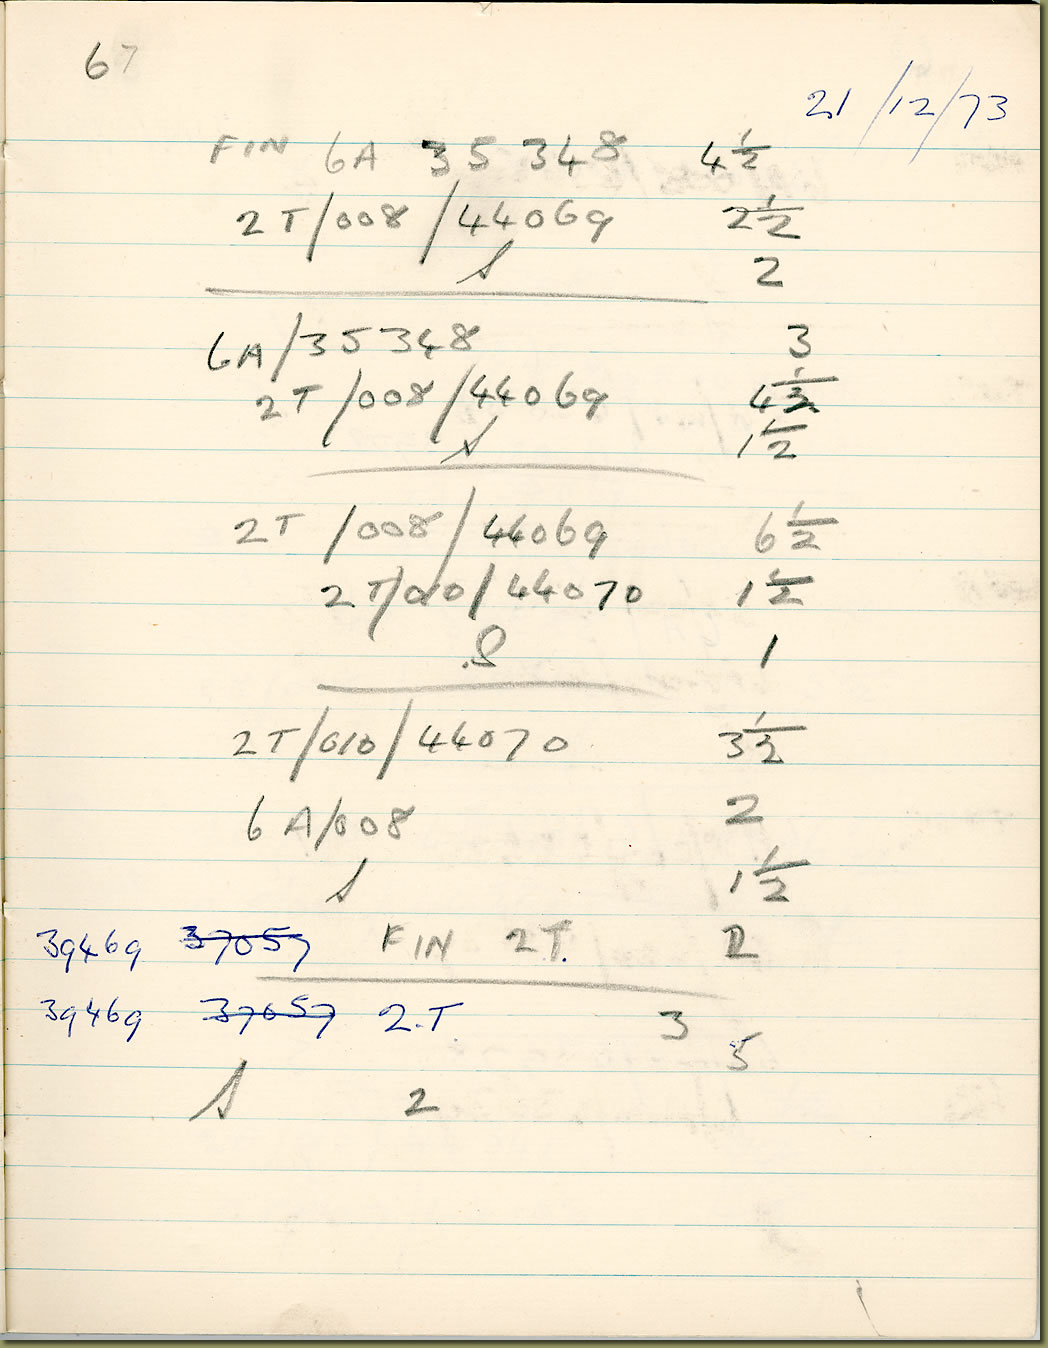 67
21/12/73
FIN 6A 35348 4½
2T/008/44069 2½
S 2
6A/35348 3
2T/008/44069 4½
S 1½
2T/008/44069 6½
2T/010/44070 1½
S 1
2T/010/44070 3½
6A/008 2
S 1½
39469 37057 FIN 2T. 2
39469 37057 2.T 3
5
S 2